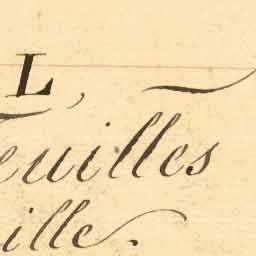 L,
euilles
ille.